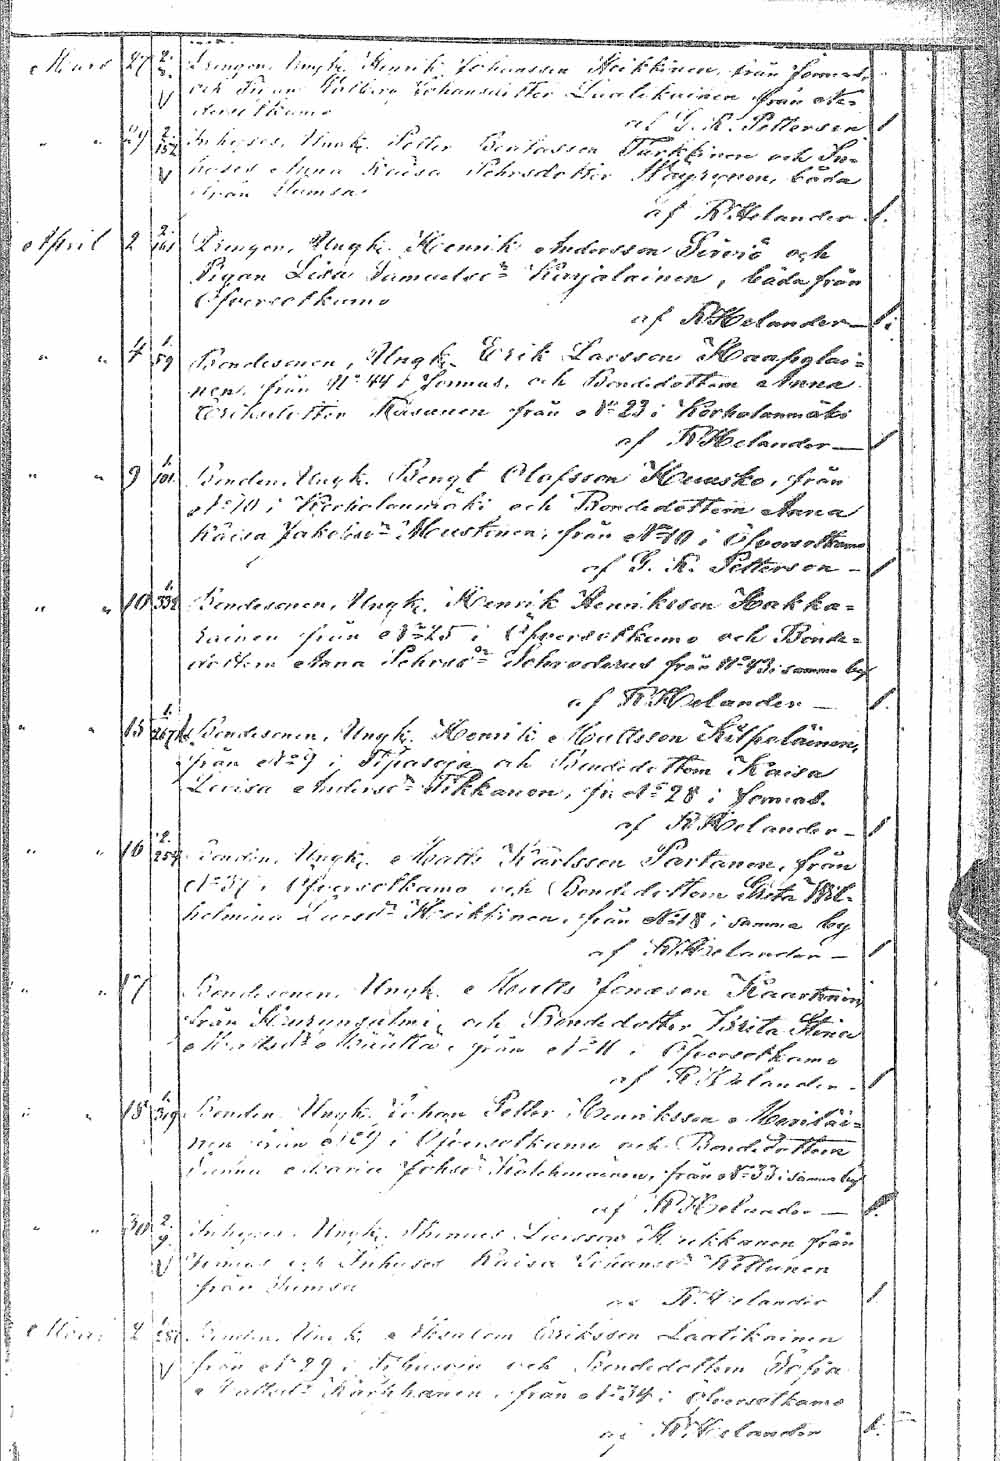 Mars 27 2. Drengen, Ungk. Henrik Johansson Heikkinen, från Jormas,
och Pigan Johansdotter Laatikainen från Ne-
dersotkamo
af G. R. Petterson 1
" " 29 2. 152 Inhyses, Ungk. Petter Tarkkinen och In-
hyses Anna Kaisa Pehrsdotter Häyrynen, båda
från Jumsa
af R Helander 1.
April 2 2. 161 Drengen, Ungk. Henrik Andersson Sirviö och
Pigan Lisa Samuelsdr Karjalainen, båda från
Öfversotkamo
af R Helander — 1.
" " 4 1. 59 Bondesonen, Ungk. Erik Larsson Haapalai-
nen, från No 44 i Jormus, och Bondedottern Anna
Eriksdotter Räsänen från No 23 i Korholanmäki
af R Helander — 1
" " 9 1. 101 Bonden, Ungk. Bengt Olofsson Huusko, från
No 10 i Korholanmäki och Bondedottern Anna
Kaisa Jakobsdr Mustonen, från No 10 i Öfversotkamo
af G. R. Petterson — 1
" " 10 1. 332 Bondesonen, Ungk. Henrik Henriksson Hakka-
rainen från No 25 i Öfversotkamo och Bonde-
dottern Anna Pehrsdr Schroderus från No 43 i samma by
af R Helander — 1.
" " 15 1. 267 Bondesonen, Ungk. Henrik Mattsson Kilpeläinen,
från No 9 i Tipasoja och Bondedottern Kaisa
Lovisa Andersdr Tikkanen, fr. No 28 i Jormas.
af R Helander — 1
" " 16 2. 259 Bonden, Ungk. Matts Karlsson Partanen, från
No 37 i Öfversotkamo och Bondedottern Greta Wil-
helmina Larsdr Heikkinen, från No 18 i samma by
af R Helander — 1
" " 17 Bondesonen, Ungk. Matts Jonasson Kaartinen
från och Bondedotter Brita Stina
Mattsdr från No 11 i Öfversotkamo
af R Helander — 1
" " 18 1. 319 Bonden, Ungk. Johan Petter Henriksson Meriläi-
nen från No 29 i Öfversotkamo och Bondedottern
Maria Johsdr från No 33 i samma by
af R Helander — 1.
" " 30 2. 9. Inhyses, Ungk. Thomas Larsson från
och Inhyses Kaisa Johansdr Kettunen
från Jumsa
af R Helander 1
2 1. Bonden, Ungk. Absalom Eriksson Laatikainen
från No 29 i Tipasoja och Bondedottern Sofia
Mattsdr Karhapää från No 34 i Öfversotkamo
af R Helander 1.